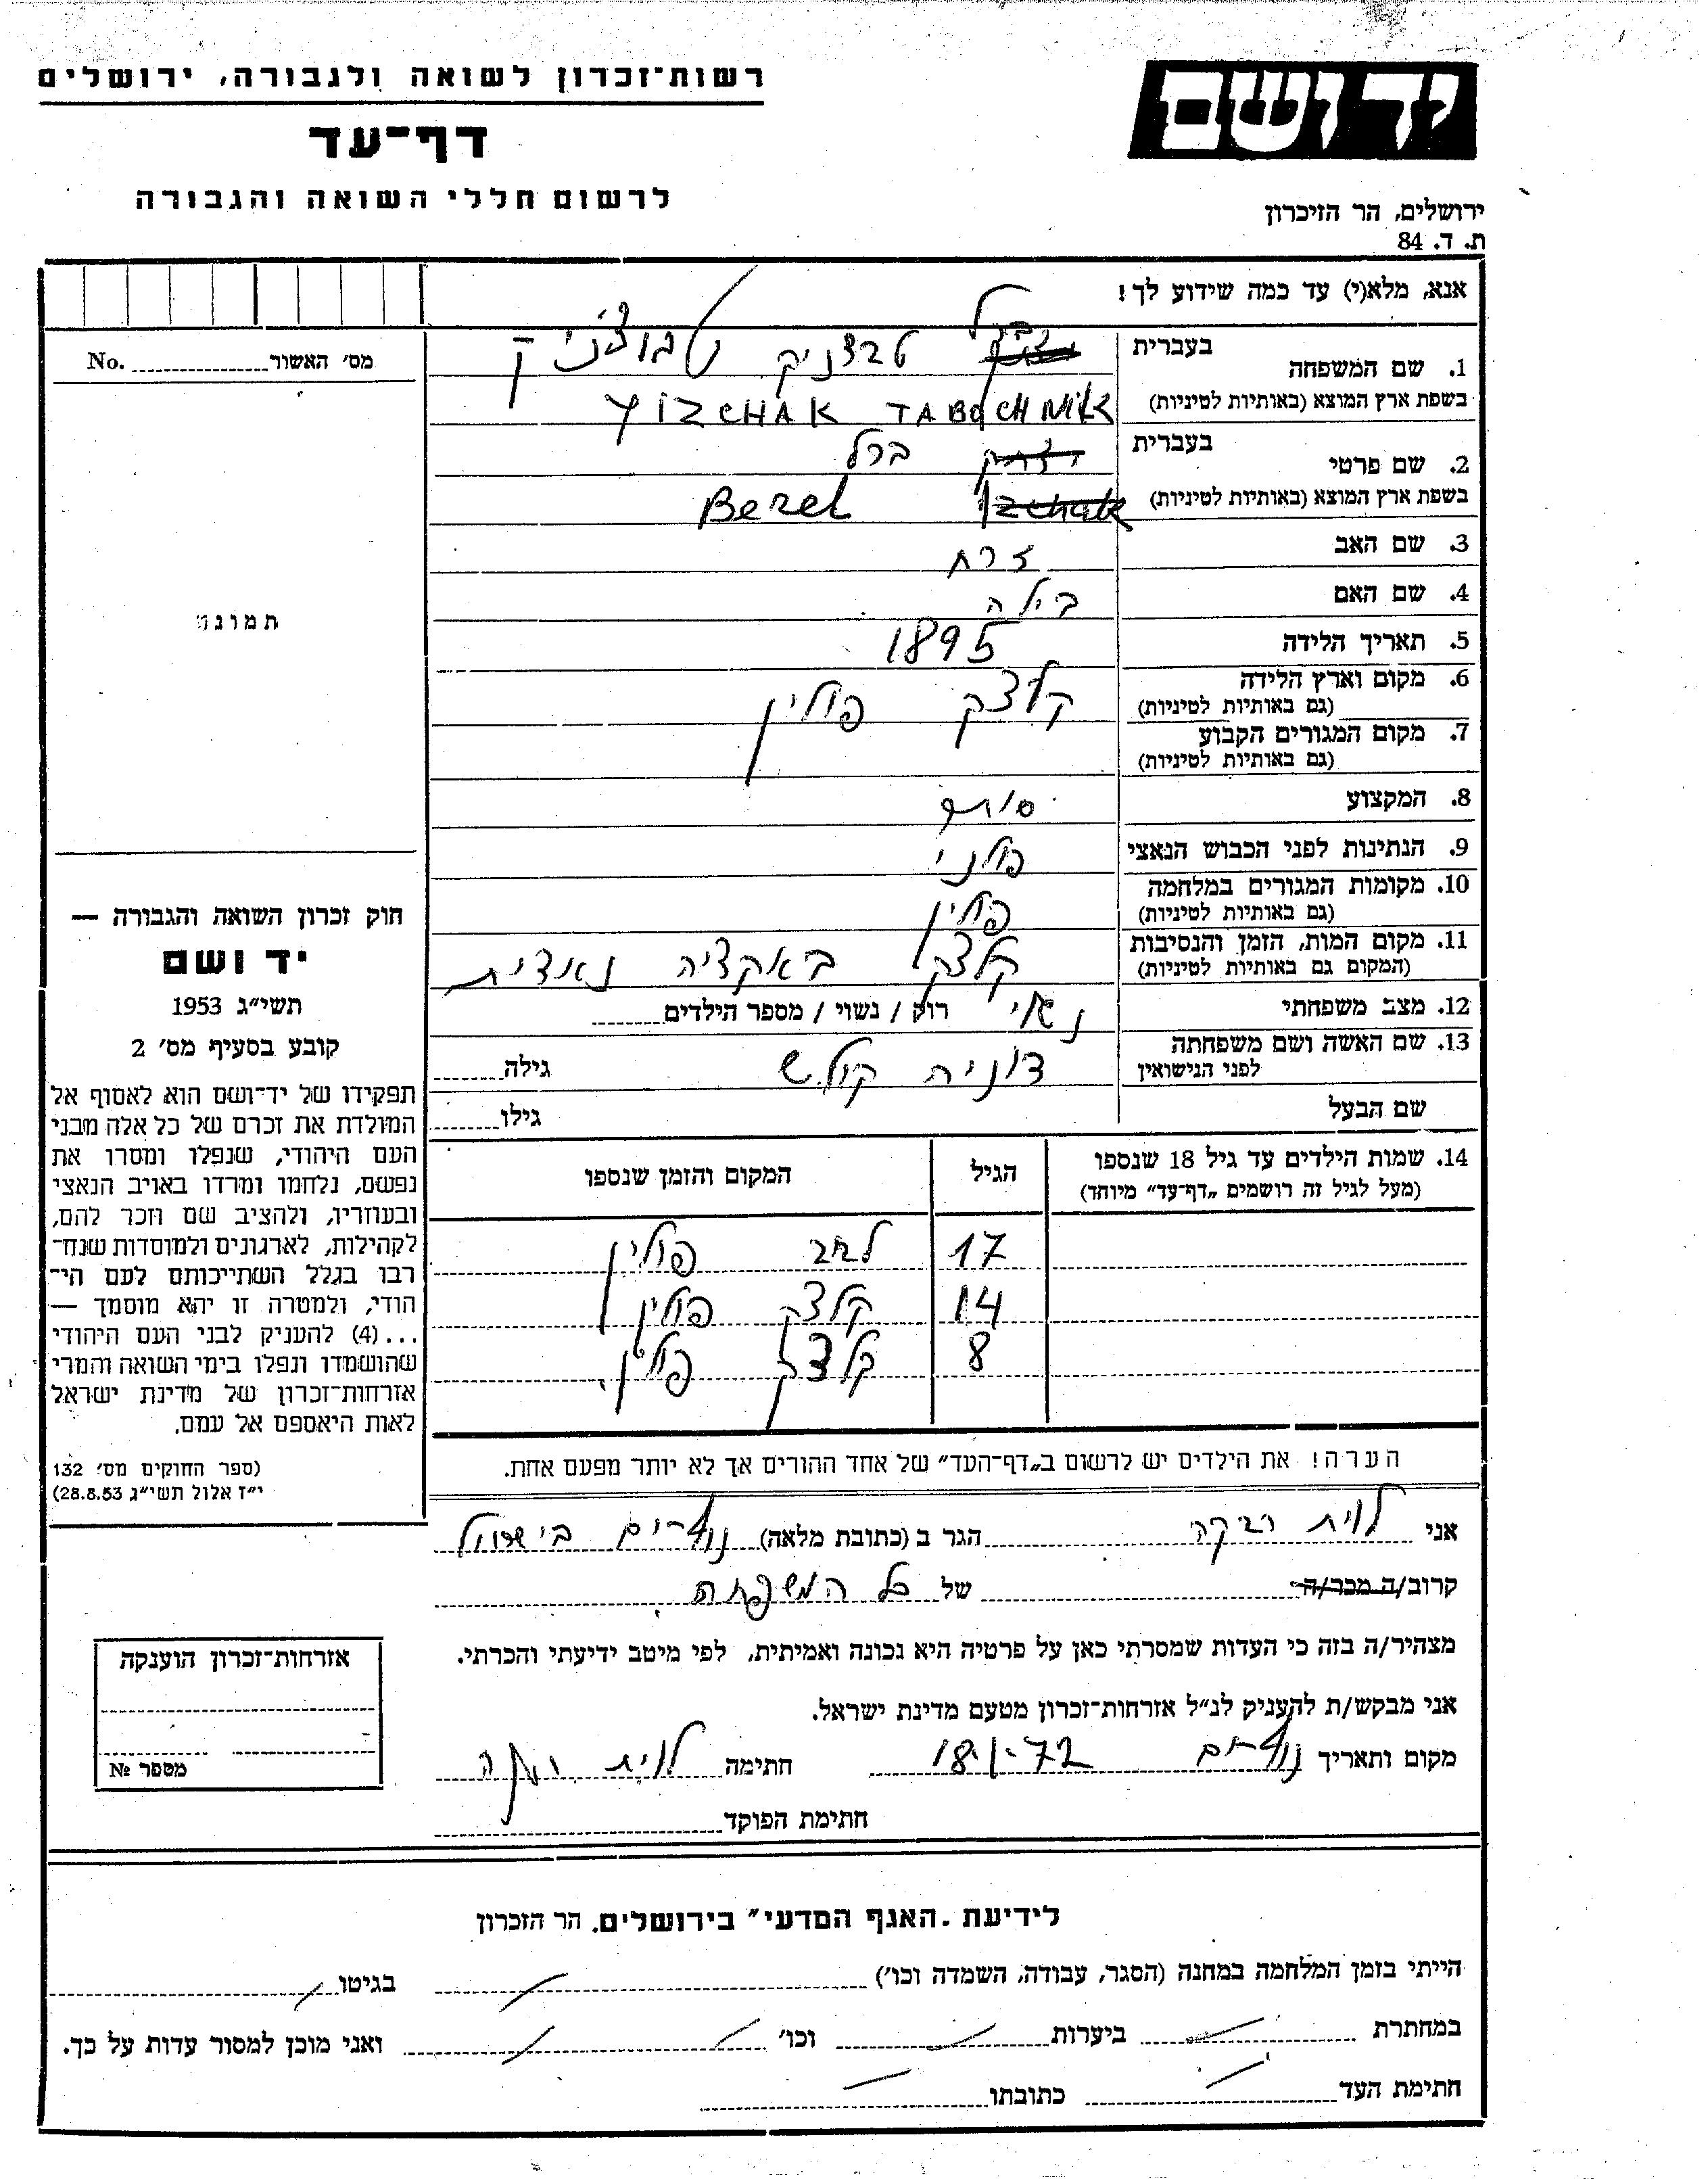 יד ושם
רשות־זכרון לשואה ולגבורה, ירושלים
דף־עד
לרשום חללי השואה והגבורה
ירושלים, הר הזיכרון
ת. ד. 84
אנא, מלא(י) עד כמה שידוע לך!
מס׳ האשור No.
תמונה
1. שם המשפחה
בעברית טבצניק
בשפת ארץ המוצא (באותיות לטיניות) YIZCHAK TABOCHNIK
2. שם פרטי
בעברית יצחק ברל
בשפת ארץ המוצא (באותיות לטיניות) Izchak Berel
3. שם האב זרח
4. שם האם בילה
5. תאריך הלידה 1895
6. מקום וארץ הלידה קלצק פולין
(גם באותיות לטיניות)
7. מקום המגורים הקבוע
(גם באותיות לטיניות)
8. המקצוע סוחר
9. הנתינות לפני הכבוש הנאצי פולני
10. מקומות המגורים במלחמה פולין
(גם באותיות לטיניות)
11. מקום המות, הזמן והנסיבות קלצק באקציה נאצית
(המקום גם באותיות לטיניות)
12. מצב משפחתי נשוי רווק / נשוי / מספר הילדים
13. שם האשה ושם משפחתה
לפני הנישואין גילה
שם הבעל גילו
14. שמות הילדים עד גיל 18 שנספו הגיל המקום והזמן שנספו
(מעל לגיל זה רושמים „דף־עד״ מיוחד)
17 פולין
14 קלצק פולין
8 קלצק פולין
הערה! את הילדים יש לרשום ב„דף־העד״ של אחד ההורים אך לא יותר מפעם אחת.
חוק זכרון השואה והגבורה —
יד ושם
תשי״ג 1953
קובע בסעיף מס׳ 2
תפקידו של יד־ושם הוא לאסוף אל
המולדת את זכרם של כל אלה מבני
העם היהודי, שנפלו ומסרו את
נפשם, נלחמו ומרדו באויב הנאצי
ובעוזריו, ולהציב שם וזכר להם,
לקהילות, לארגונים ולמוסדות שנח־
רבו בגלל השתייכותם לעם הי־
הודי, ולמטרה זו יהא מוסמך —
...(4) להעניק לבני העם היהודי
שהושמדו ונפלו בימי השואה והמרי
אזרחות־זכרון של מדינת ישראל
לאות היאספם אל עמם.
(ספר החוקים מס׳ 132
י״ז אלול תשי״ג 28.8.53)
אני לוית רבקה הגר ב (כתובת מלאה)
קרוב/ה מכר/ה של כל המשפחה
מצהיר/ה בזה כי העדות שמסרתי כאן על פרטיה היא נכונה ואמיתית, לפי מיטב ידיעתי והכרתי.
אני מבקש/ת להעניק לנ״ל אזרחות־זכרון מטעם מדינת ישראל.
מקום ותאריך 18.1.72 חתימה לוית רבקה
חתימת הפוקד
אזרחות־זכרון הוענקה
מספר №
לידיעת „האגף המדעי״ בירושלים. הר הזכרון
הייתי בזמן המלחמה במחנה (הסגר, עבודה, השמדה וכו׳) בגיטו
במחתרת ביערות וכו׳ ואני מוכן למסור עדות על כך.
חתימת העד כתובתו